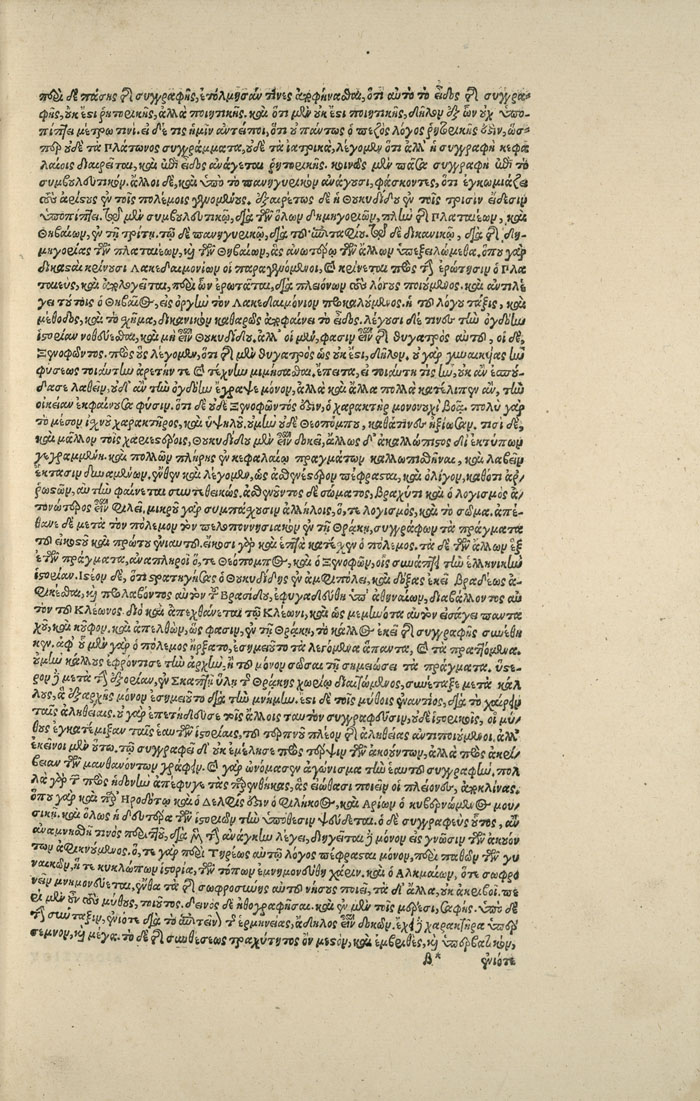 περὶ δὲ πάσης τῆς συγγραφῆς, ἐτόλμησάν τινες ἀποφήνασθαι, ὅτι αὐτὸ τὸ εἶδος τῆς συγγρα-
φῆς, οὐκ ἔστι ῥητορικῆς, ἀλλὰ ποιητικῆς. καὶ ὅτι μὲν οὐκ ἔστι ποιητικῆς, δῆλον ἐξ ὧν οὐχ ὑπο-
πίπτει μέτρῳ τινί. εἰ δέ τις ἡμῖν ἀντείποι, ὅτι οὐ πάντως ὁ πεζὸς λόγος ῥητορικῆς ἐστιν, ὥσ-
περ οὐδὲ τὰ Πλάτωνος συγγράμματα, οὐδὲ τὰ ἰατρικά, λέγομεν ὅτι ἀλλ' ἡ συγγραφὴ κεφα
λαίοις διαιρεῖται, καὶ ἐπὶ εἶδος ἀνάγεται ῥητορικῆς. κοινῶς μὲν πᾶσα συγγραφὴ ἐπὶ τὸ
συμβουλευτικόν. ἄλλοι δὲ, καὶ ὑπὸ τὸ πανηγυρικὸν ἀνάγουσι, φάσκοντες, ὅτι ἐγκωμιάζει
τοὺς ἀρίστους ἐν τοῖς πολέμοις γενομένους. ἐξαιρέτως δὲ ἡ Θουκυδίδου ἐν τοῖς τρισὶν εἴδεσιν
ὑποπίπτει. τῷ μὲν συμβουλευτικῷ, διὰ τῶν ὅλων δημηγοριῶν, πλὴν τῆς Πλαταιέων, καὶ
Θηβαίων, ἐν τῇ τρίτῃ. τῷ δὲ πανηγυρικῷ, διὰ τοῦ ἐπιταφίου. τῷ δὲ δικανικῷ, διὰ τῆς δη-
μηγορίας τῶν πλαταιέων, καὶ τῶν Θηβαίων, ἃς ἀνωτέρω τῶν ἄλλων ὑπεξειλόμεθα. ὅπου γὰρ
δικασταὶ κρίνουσι Λακεδαιμονίων οἱ παραγενόμενοι, καὶ κρίνεται πρὸς τὴν ἐρώτησιν ὁ Πλα
ταιεὺς, καὶ ἀπολογεῖται, περὶ ὧν ἐρωτᾶται, διὰ πλειόνων τοὺς λόγους ποιούμενος. καὶ ἀντιλέ
γει τούτοις ὁ Θηβαῖος, εἰς ὀργὴν τὸν Λακεδαιμόνιον προκαλούμενος. ἡ τοῦ λόγου τάξις, καὶ
μέθοδος, καὶ τὸ σχῆμα, δικανικὸν καθαρῶς ἀποφαίνει τὸ εἶδος. λέγουσι δέ τινες τὴν ὀγδόην
ἱστορίαν νοθεύεσθαι, καὶ μὴ εἶναι Θουκυδίδου. ἀλλ' οἱ μέν, φασιν εἶναι τῆς θυγατρὸς αὐτοῦ, οἱ δὲ,
Ξενοφῶντος. πρὸς οὓς λέγομεν, ὅτι τῆς μὲν θυγατρὸς ὡς οὐκ ἔστι, δῆλον. οὐ γὰρ γυναικείας ἦν
φύσεως τοιαύτην ἀρετήν τε καὶ τέχνην μιμήσασθαι. ἔπειτα, εἰ τοιαύτη τις ἦν, οὐκ ἂν ἐσπού-
δασε λαθεῖν, οὐδ' ἂν τὴν ὀγδόην ἔγραψε μόνον, ἀλλὰ καὶ ἄλλα πολλὰ κατέλιπεν ἂν, τὴν
οἰκείαν ἐκφαίνουσα φύσιν. ὅτι δὲ οὐδὲ Ξενοφῶντός ἐστιν, ὁ χαρακτὴρ μονονουχὶ βοᾷ. πολὺ γὰρ
τὸ μέσον ἰσχνοῦ χαρακτῆρος, καὶ ὑψηλοῦ. οὐ μὴν οὐδὲ Θεοπόμπου, καθά τινες ἠξίωσαν. τισὶ δὲ,
καὶ μᾶλλον τοῖς χαριεστέροις, Θουκυδίδου μὲν εἶναι δοκεῖ, ἄλλως δ' ἀκαλλώπιστος δι' ἐκτύπων
γεγραμμένη. καὶ πολλῶν πλήρης ἐν κεφαλαίῳ πραγμάτων καλλωπισθῆναι, καὶ λαβεῖν
ἔκτασιν δυναμένων. ἔνθεν καὶ λέγομεν, ὡς ἀσθενέστερον πέφρασται, καὶ ὀλίγον, καθότι ἀρ-
ρωστῶν, αὐτὴν φαίνεται συντεθεικώς. ἀσθενοῦντος δὲ σώματος, βραχύ τι καὶ ὁ λογισμὸς ἀ-
τονώτερος εἶναι φιλεῖ. μικροῦ γὰρ συμπάσχουσιν ἀλλήλοις, ὅ, τε λογισμὸς, καὶ τὸ σῶμα. ἀπέ-
θανε δὲ μετὰ τὸν πόλεμον τὸν πελοποννησιακὸν ἐν τῇ Θρᾴκῃ, συγγράφων τὰ πράγματα
τοῦ εἰκοστοῦ καὶ πρώτου ἐνιαυτοῦ. εἴκοσι γὰρ καὶ ἑπτὰ κατέσχεν ὁ πόλεμος. τὰ δὲ τῶν ἄλλων ἓξ
ἐτῶν πράγματα, ἀναπληροῖ ὅ, τε Θεόπομπος, καὶ ὁ Ξενοφῶν, οἷς συνάπτει τὴν ἑλληνικὴν
ἱστορίαν. Ἰστέον δὲ, ὅτι στρατηγήσας ὁ Θουκυδίδης ἐν ἀμφιπόλει, καὶ δόξας ἐκεῖ βραδέως ἀ-
φικέσθαι, καὶ προλαβόντος αὐτὸν τοῦ Βρασίδου, ἐφυγαδεύθη ὑπ' ἀθηναίων, διαβάλλοντος αὐ
τὸν τοῦ Κλέωνος. διὸ καὶ ἀπεχθάνεται τῷ Κλέωνι, καὶ ὡς μεμηνότα αὐτὸν εἰσάγει παντα
χοῦ, καὶ κοῦφον. καὶ ἀπελθὼν, ὥς φασιν, ἐν τῇ Θρᾴκῃ, τὸ κάλλος ἐκεῖ τῆς συγγραφῆς συνέθη
κεν. ἀφ' οὗ μὲν γὰρ ὁ πόλεμος ἤρξατο, ἐσημειοῦτο τὰ λεγόμενα ἅπαντα, καὶ τὰ πραττόμενα.
οὐ μὴν κάλλους ἐφρόντισε τὴν ἀρχὴν, ἢ τοῦ μόνον σῶσαι τῇ σημειώσει τὰ πράγματα. ὕστε-
ρον δὲ μετὰ τὴν ἐξορίαν, ἐν Σκαπτῇ ὕλῃ τῆς Θρᾴκης χωρίῳ διαιτώμενος, συνέταξε μετὰ κάλ
λους, ἃ ἐξαρχῆς μόνον ἐσημειοῦτο διὰ τὴν μνήμην. ἔστι δὲ τοῖς μύθοις ἐναντίος, διὰ τὸ χαίρειν
ταῖς ἀληθείαις. οὐ γὰρ ἐπετήδευσε τοῖς ἄλλοις ταυτὸν συγγραφεῦσιν, οὐδὲ ἱστορικοῖς, οἳ μύ-
θους ἐγκατέμιξαν ταῖς ἑαυτῶν ἱστορίαις, τοῦ τερπνοῦ πλέον τῆς ἀληθείας ἀντιποιούμενοι. ἀλλ'
ἐκεῖνοι μὲν οὕτω. τῷ συγγραφεῖ δ' οὐκ ἐμέλησε πρὸς τέρψιν τῶν ἀκουόντων, ἀλλὰ πρὸς ἀκρί-
βειαν τῶν μανθανόντων γράφειν. καὶ γὰρ ὠνόμασεν ἀγώνισμα τὴν ἑαυτοῦ συγγραφήν. πολ
λὰ γὰρ τῶν πρὸς ἡδονὴν ἀπέφυγε τὰς παρενθήκας, ἃς εἰώθασι ποιεῖν οἱ πλείονες, ἀποκλίνας.
ὅπου γὰρ καὶ παρ' Ἡροδότῳ καὶ ὁ Δελφίς ἐστιν ὁ φιλήκοος, καὶ Ἀρίων ὁ κυβερνώμενος μου-
σικῇ. καὶ ὅλως ἡ δευτέρα τῶν ἱστοριῶν τὴν ὑπόθεσιν ψεύδεται. ὁ δὲ συγγραφεὺς οὗτος, ἂν
ἀναμνησθῇ τινὸς περιττοῦ, διὰ μὲν τὴν ἀνάγκην λέγει, διηγεῖται δὲ μόνον εἰς γνῶσιν τῶν ἀκουόν
των ἀφικνούμενος. ὅ, τε γὰρ περὶ Τηρέως αὐτῷ λόγος πέφρασται μόνον, περὶ παθῶν τῶν γυ
ναικῶν, ἥ τε κυκλώπων ἱστορία, τῶν τόπων ἐμνημονεύθη χάριν. καὶ ὁ Ἀλκμαίων, ὅτε σωφρο
νεῖν μνημονεύεται, ἔνθα τὰ τῆς σωφροσύνης αὐτοῦ νήσους ποιεῖ, τὰ δ' ἄλλα, οὐκ ἀκριβοῖ. πε
ρὶ μὲν οὖν τοὺς μύθους, τοιοῦτος. δεινὸς δὲ ἠθογραφῆσαι. καὶ ἐν μὲν τοῖς μέρεσι, σαφής. ὑπὸ δὲ
τὴν σύνταξιν, ἐνίοτε διὰ τὸ ἐπιτεῖνον τῆς ἑρμηνείας, ἄδηλος εἶναι δοκῶν. ἔχει δὲ χαρακτῆρα ὑπέρ
σεμνον, καὶ μέγα. τὸ δὲ τῆς συνθέσεως τραχύτητος ὂν μεστὸν, καὶ ἐμβριθὲς, καὶ ὑπερβατικόν,
B* ἐνίοτε